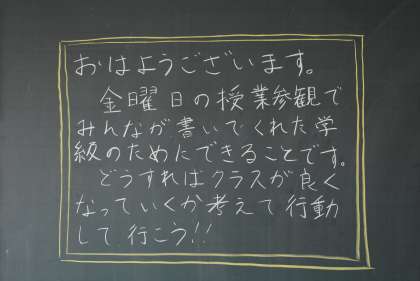 おはようございます。
金曜日の授業参観で
みんなが書いてくれた学
級のためにできることです。
どうすればクラスが良く
なっていくか考えて行動
して行こう!!